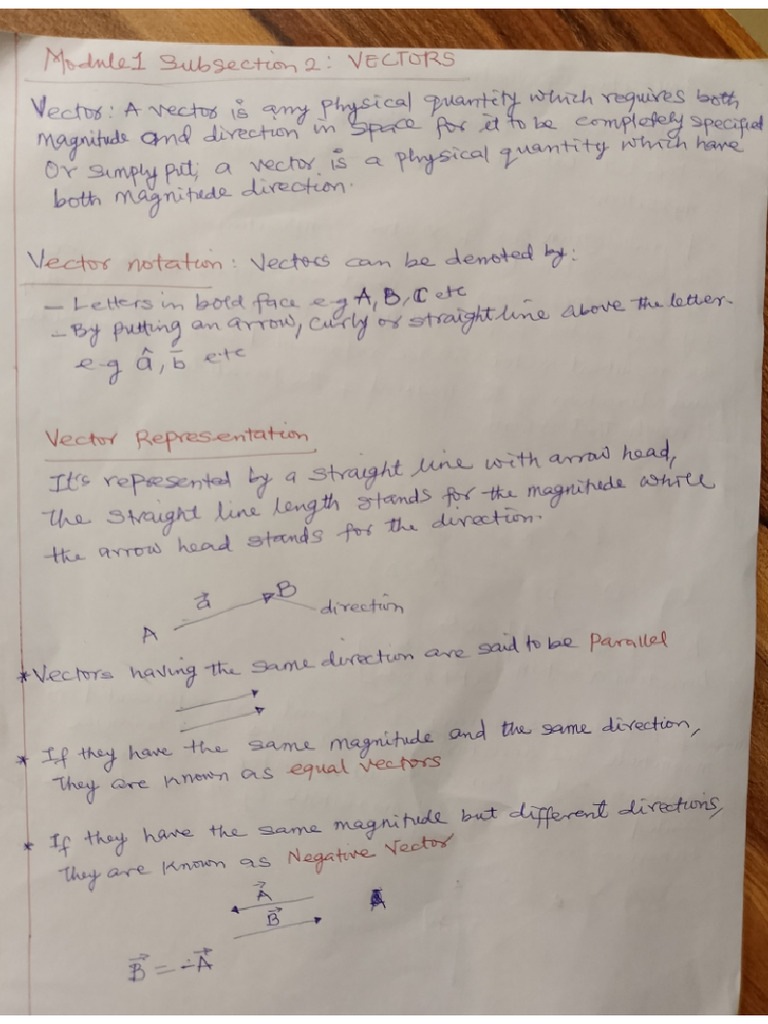 Module 1 Subsection 2: VECTORS
Vector: A vector is any physical quantity which requires both
magnitude and direction in space for it to be completely specified
Or simply put, a vector is a physical quantity which have
both magnitude direction.
Vector notation: Vectors can be denoted by:
- Letters in bold face e.g A, B, C etc
- By putting an arrow, curly or straight line above the letter.
e.g â, b̄ etc
Vector Representation
It's represented by a straight line with arrow head,
the straight line length stands for the magnitude while
the arrow head stands for the direction.
A a⃗ B direction
* Vectors having the same direction are said to be Parallel
* If they have the same magnitude and the same direction,
They are known as equal vectors
* If they have the same magnitude but different directions,
They are known as Negative Vector
A⃗
B⃗
B⃗ = -A⃗